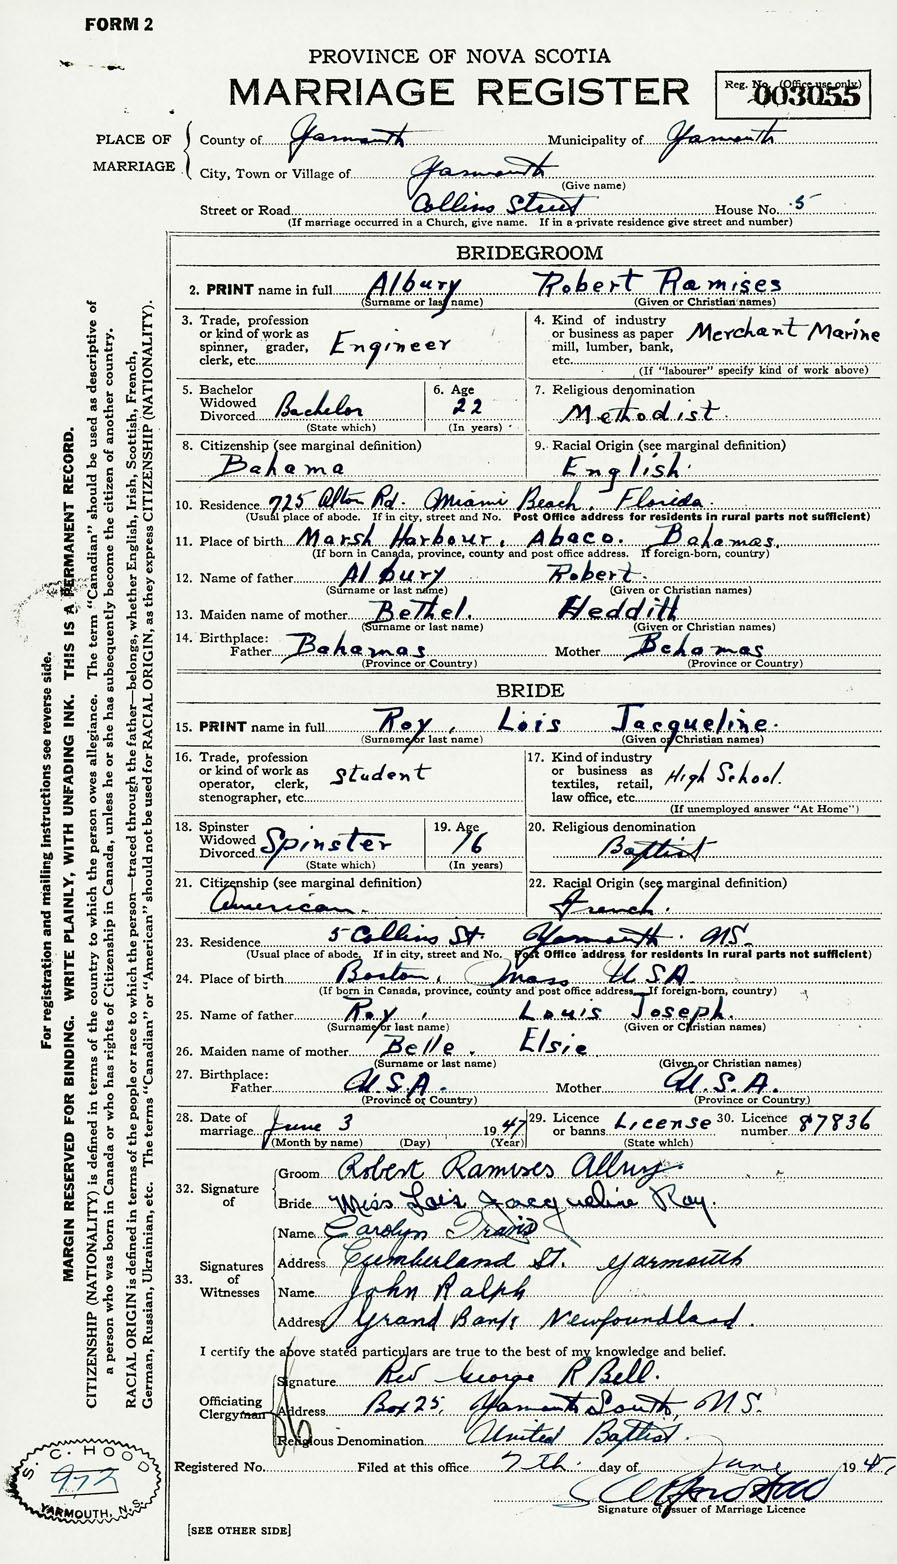 FORM 2
PROVINCE OF NOVA SCOTIA
MARRIAGE REGISTER
Reg. No. (Office use only)
003055
PLACE OF MARRIAGE
County of Yarmouth Municipality of Yarmouth
City, Town or Village of Yarmouth
(Give name)
Street or Road Collins Street House No. 5
(If marriage occurred in a Church, give name. If in a private residence give street and number)
BRIDEGROOM
2. PRINT name in full Albury Robert Ramises
(Surname or last name) (Given or Christian names)
3. Trade, profession or kind of work as spinner, grader, clerk, etc. Engineer
4. Kind of industry or business as paper mill, lumber, bank, etc. Merchant Marine
(If "labourer" specify kind of work above)
5. Bachelor Widowed Divorced Bachelor
(State which)
6. Age 22
(In years)
7. Religious denomination
Methodist
8. Citizenship (see marginal definition)
Bahama
9. Racial Origin (see marginal definition)
English
10. Residence 725 Alton Rd. Miami Beach, Florida
(Usual place of abode. If in city, street and No. Post Office address for residents in rural parts not sufficient)
11. Place of birth Marsh Harbour, Abaco. Bahamas.
(If born in Canada, province, county and post office address. If foreign-born, country)
12. Name of father Albury Robert.
(Surname or last name) (Given or Christian names)
13. Maiden name of mother Bethel. Heddith
(Surname or last name) (Given or Christian names)
14. Birthplace:
Father Bahamas Mother Bahamas
(Province or Country) (Province or Country)
BRIDE
15. PRINT name in full Roy, Lois Jacqueline.
(Surname or last name) (Given or Christian names)
16. Trade, profession or kind of work as operator, clerk, stenographer, etc. student
17. Kind of industry or business as textiles, retail, law office, etc. High School.
(If unemployed answer "At Home")
18. Spinster Widowed Divorced Spinster
(State which)
19. Age 16
(In years)
20. Religious denomination
Baptist
21. Citizenship (see marginal definition)
American.
22. Racial Origin (see marginal definition)
French.
23. Residence 5 Collins St Yarmouth. N.S.
(Usual place of abode, If in city, street and No. Post Office address for residents in rural parts not sufficient)
24. Place of birth Boston, Mass U.S.A.
(If born in Canada, province, county and post office address. If foreign-born, country)
25. Name of father Roy, Louis Joseph.
(Surname or last name) (Given or Christian names)
26. Maiden name of mother Belle. Elsie
(Surname or last name) (Given or Christian names)
27. Birthplace:
Father U.S.A. Mother U.S.A.
(Province or Country) (Province or Country)
28. Date of marriage June 3 1947
(Month by name) (Day) (Year)
29. Licence or banns License
(State which)
30. Licence number 87836
32. Signature of
Groom Robert Ramises Albury
Bride Miss Lois Jacqueline Roy.
33. Signatures of Witnesses
Name Carolyn Travis
Address Cumberland St. Yarmouth
Name John Ralph
Address Grand Bank Newfoundland.
I certify the above stated particulars are true to the best of my knowledge and belief.
Officiating Clergyman
Signature Rev George R Bell.
Address Box 25, Yarmouth South, N.S.
Religious Denomination United Baptist.
Registered No. Filed at this office 7th. day of June 1947
Signature of Issuer of Marriage Licence
[SEE OTHER SIDE]
For registration and mailing instructions see reverse side.
MARGIN RESERVED FOR BINDING. WRITE PLAINLY, WITH UNFADING INK. THIS IS A PERMANENT RECORD.
CITIZENSHIP (NATIONALITY) is defined in terms of the country to which the person owes allegiance. The term "Canadian" should be used as descriptive of
a person who was born in Canada or who has rights of Citizenship in Canada, unless he or she has subsequently become the citizen of another country.
RACIAL ORIGIN is defined in terms of the people or race to which the person—traced through the father—belongs, whether English, Irish, Scottish, French,
German, Russian, Ukrainian, etc. The terms "Canadian" or "American" should not be used for RACIAL ORIGIN, as they express CITIZENSHIP (NATIONALITY).
S. C. HOOD
972
YARMOUTH, N.S.